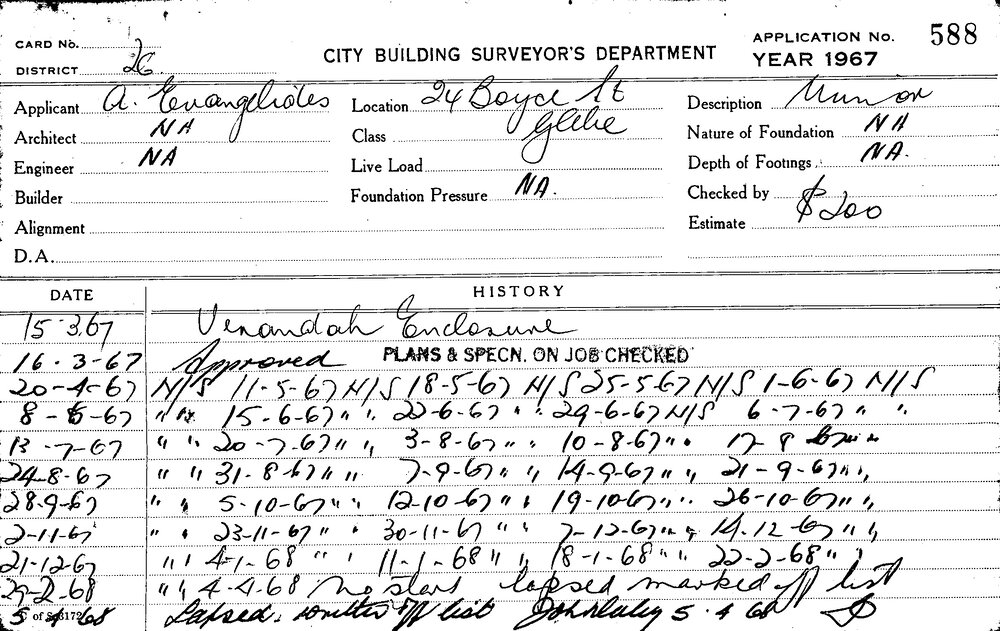 CARD No.
DISTRICT 26
CITY BUILDING SURVEYOR'S DEPARTMENT
APPLICATION No. 588
YEAR 1967
Applicant A. Evangelides
Architect NA
Engineer NA
Builder
Alignment
D.A.
Location 24 Boyce St
Glebe
Class
Live Load
Foundation Pressure NA.
Description Minor
Nature of Foundation NA
Depth of Footings NA.
Checked by
Estimate $200
DATE HISTORY
15.3.67 Verandah Enclosure
16.3-67 Approved PLANS & SPECN. ON JOB CHECKED
20-4-67 N/S 11-5-67 N/S 18-5-67 N/S 25-5-67 N/S 1-6-67 N/S
8-6-67 " " 15-6-67 " " 22-6-67 " " 29-6-67 N/S 6-7-67 " "
13-7-67 " " 20-7-67 " " 3-8-67 " " 10-8-67 " " 17-8
24-8-67 " " 31-8-67 " " 7-9-67 " " 14-9-67 " " 21-9-67 " "
28-9-67 " " 5-10-67 " " 12-10-67 " " 19-10-67 " " 26-10-67 " "
2-11-67 " " 23-11-67 " " 30-11-67 " " 7-12-67 " " 14-12-67 " "
21-12-67 " " 4-1-68 " " 11-1-68 " " 18-1-68 " " 22-2-68 " "
29-2-68 " " 4-4-68 No start lapsed marked off list
5-4-68 Lapsed. off list 5.4.68